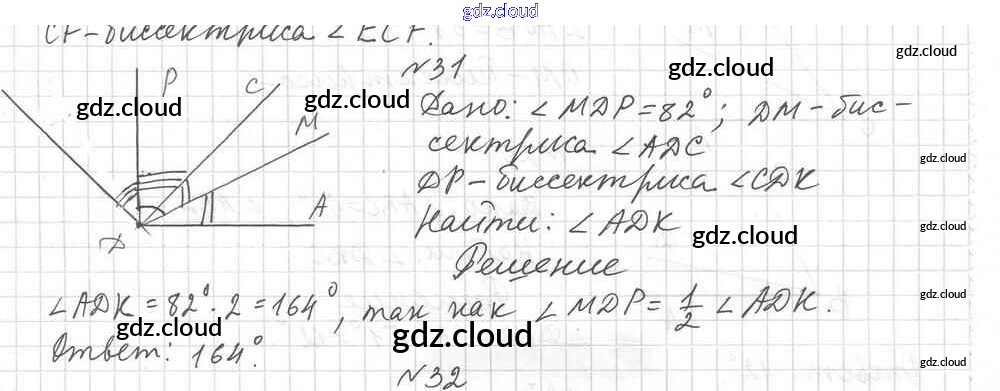 gdz.cloud
CF - биссектриса ∠ECF.
gdz.cloud
N31
gdz.cloud
P
C
gdz.cloud
gdz.cloud
M
Дано: ∠MDP = 82°; DM - бис-
сектриса ∠ADC
gdz.cloud
DP - биссектриса ∠CDK
A
Найти: ∠ADK
gdz.cloud
gdz.cloud
D
Решение
∠ADK = 82° · 2 = 164°, так как ∠MDP = 1/2 ∠ADK.
gdz.cloud
gdz.cloud
gdz.cloud
Ответ: 164°.
gdz.cloud
N32